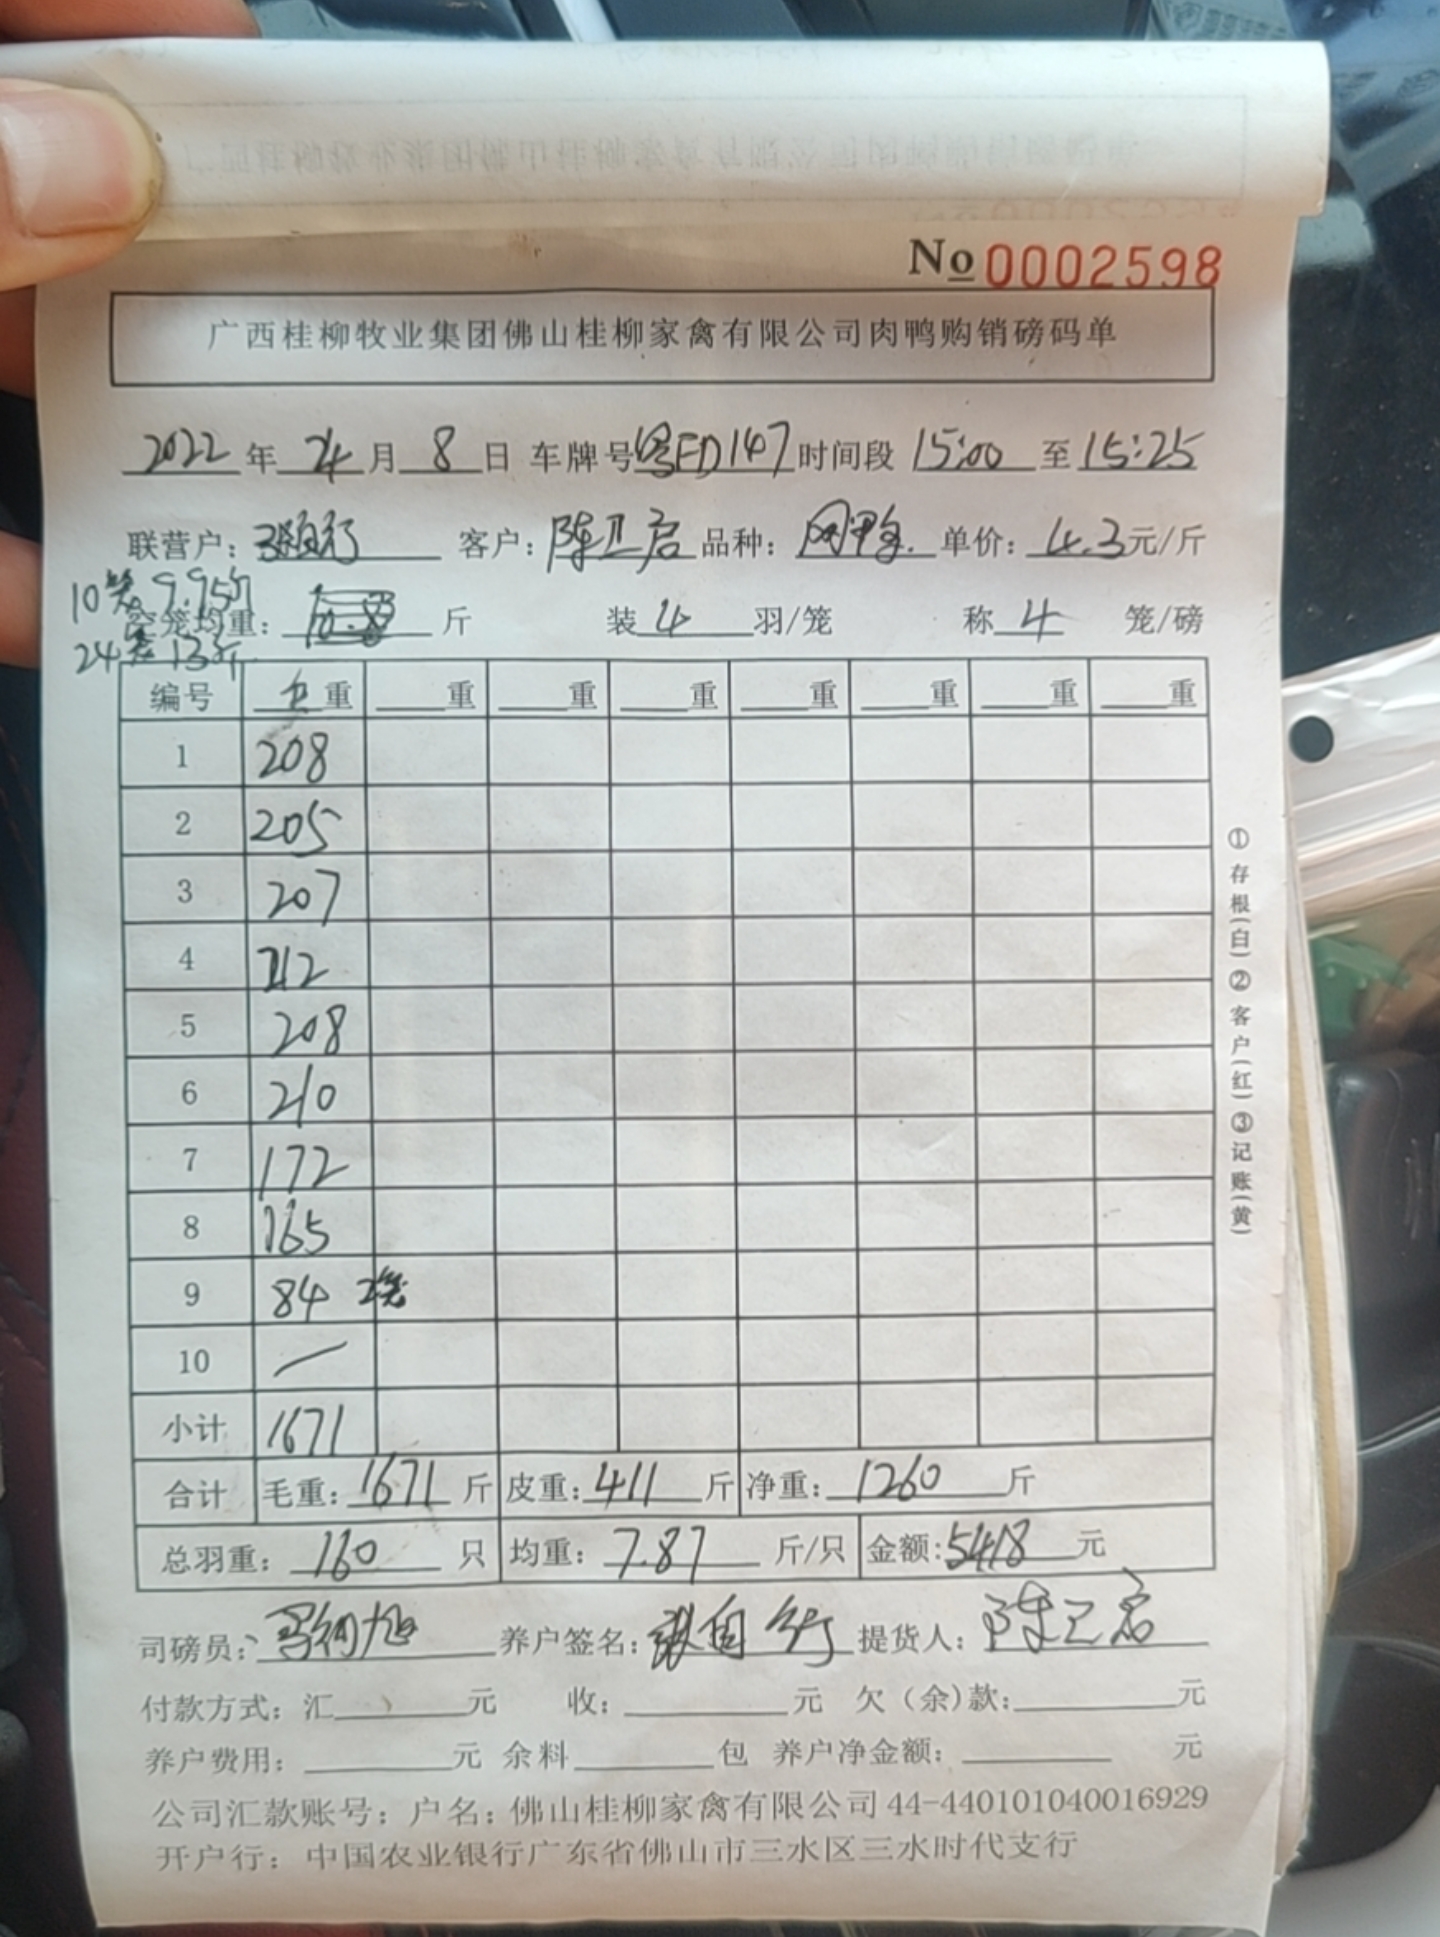 No 0002598
广西桂柳牧业集团佛山桂柳家禽有限公司肉鸭购销磅码单
2022年 4月 8日 车牌号粤ED147 时间段 15:00 至 15:25
联营户: 客户: 陈卫启 品种: 单价: 4.3元/斤
10笼 9.95斤
空笼均重: 斤 装 4 羽/笼 称 4 笼/磅
24笼 13斤
编号 毛重 重 重 重 重 重 重 重
1 208
2 205
3 207
4 212
5 208
6 210
7 172
8 165
9 84 2笼
10 —
小计 1671
合计 毛重: 1671 斤 皮重: 411 斤 净重: 1260 斤
总羽重: 160 只 均重: 7.87 斤/只 金额: 5418 元
司磅员: 养户签名: 张自行 提货人: 陈卫启
付款方式: 汇 元 收: 元 欠(余)款: 元
养户费用: 元 余料 包 养户净金额: 元
公司汇款账号: 户名: 佛山桂柳家禽有限公司 44-440101040016929
开户行: 中国农业银行广东省佛山市三水区三水时代支行
①存根(白)②客户(红)③记账(黄)